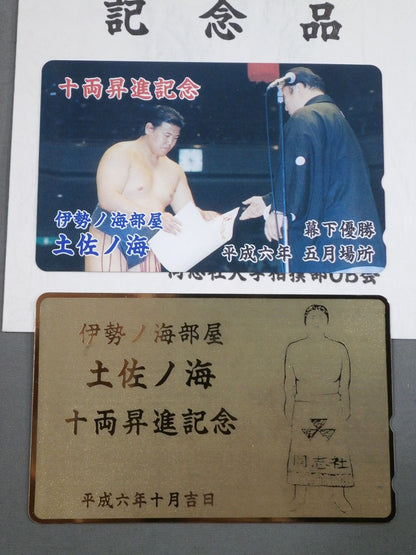 記念品
十両昇進記念
伊勢ノ海部屋
土佐ノ海
幕下優勝
平成六年 五月場所
同志社大学相撲部OB会
伊勢ノ海部屋
土佐ノ海
十両昇進記念
同志社
平成六年十月吉日